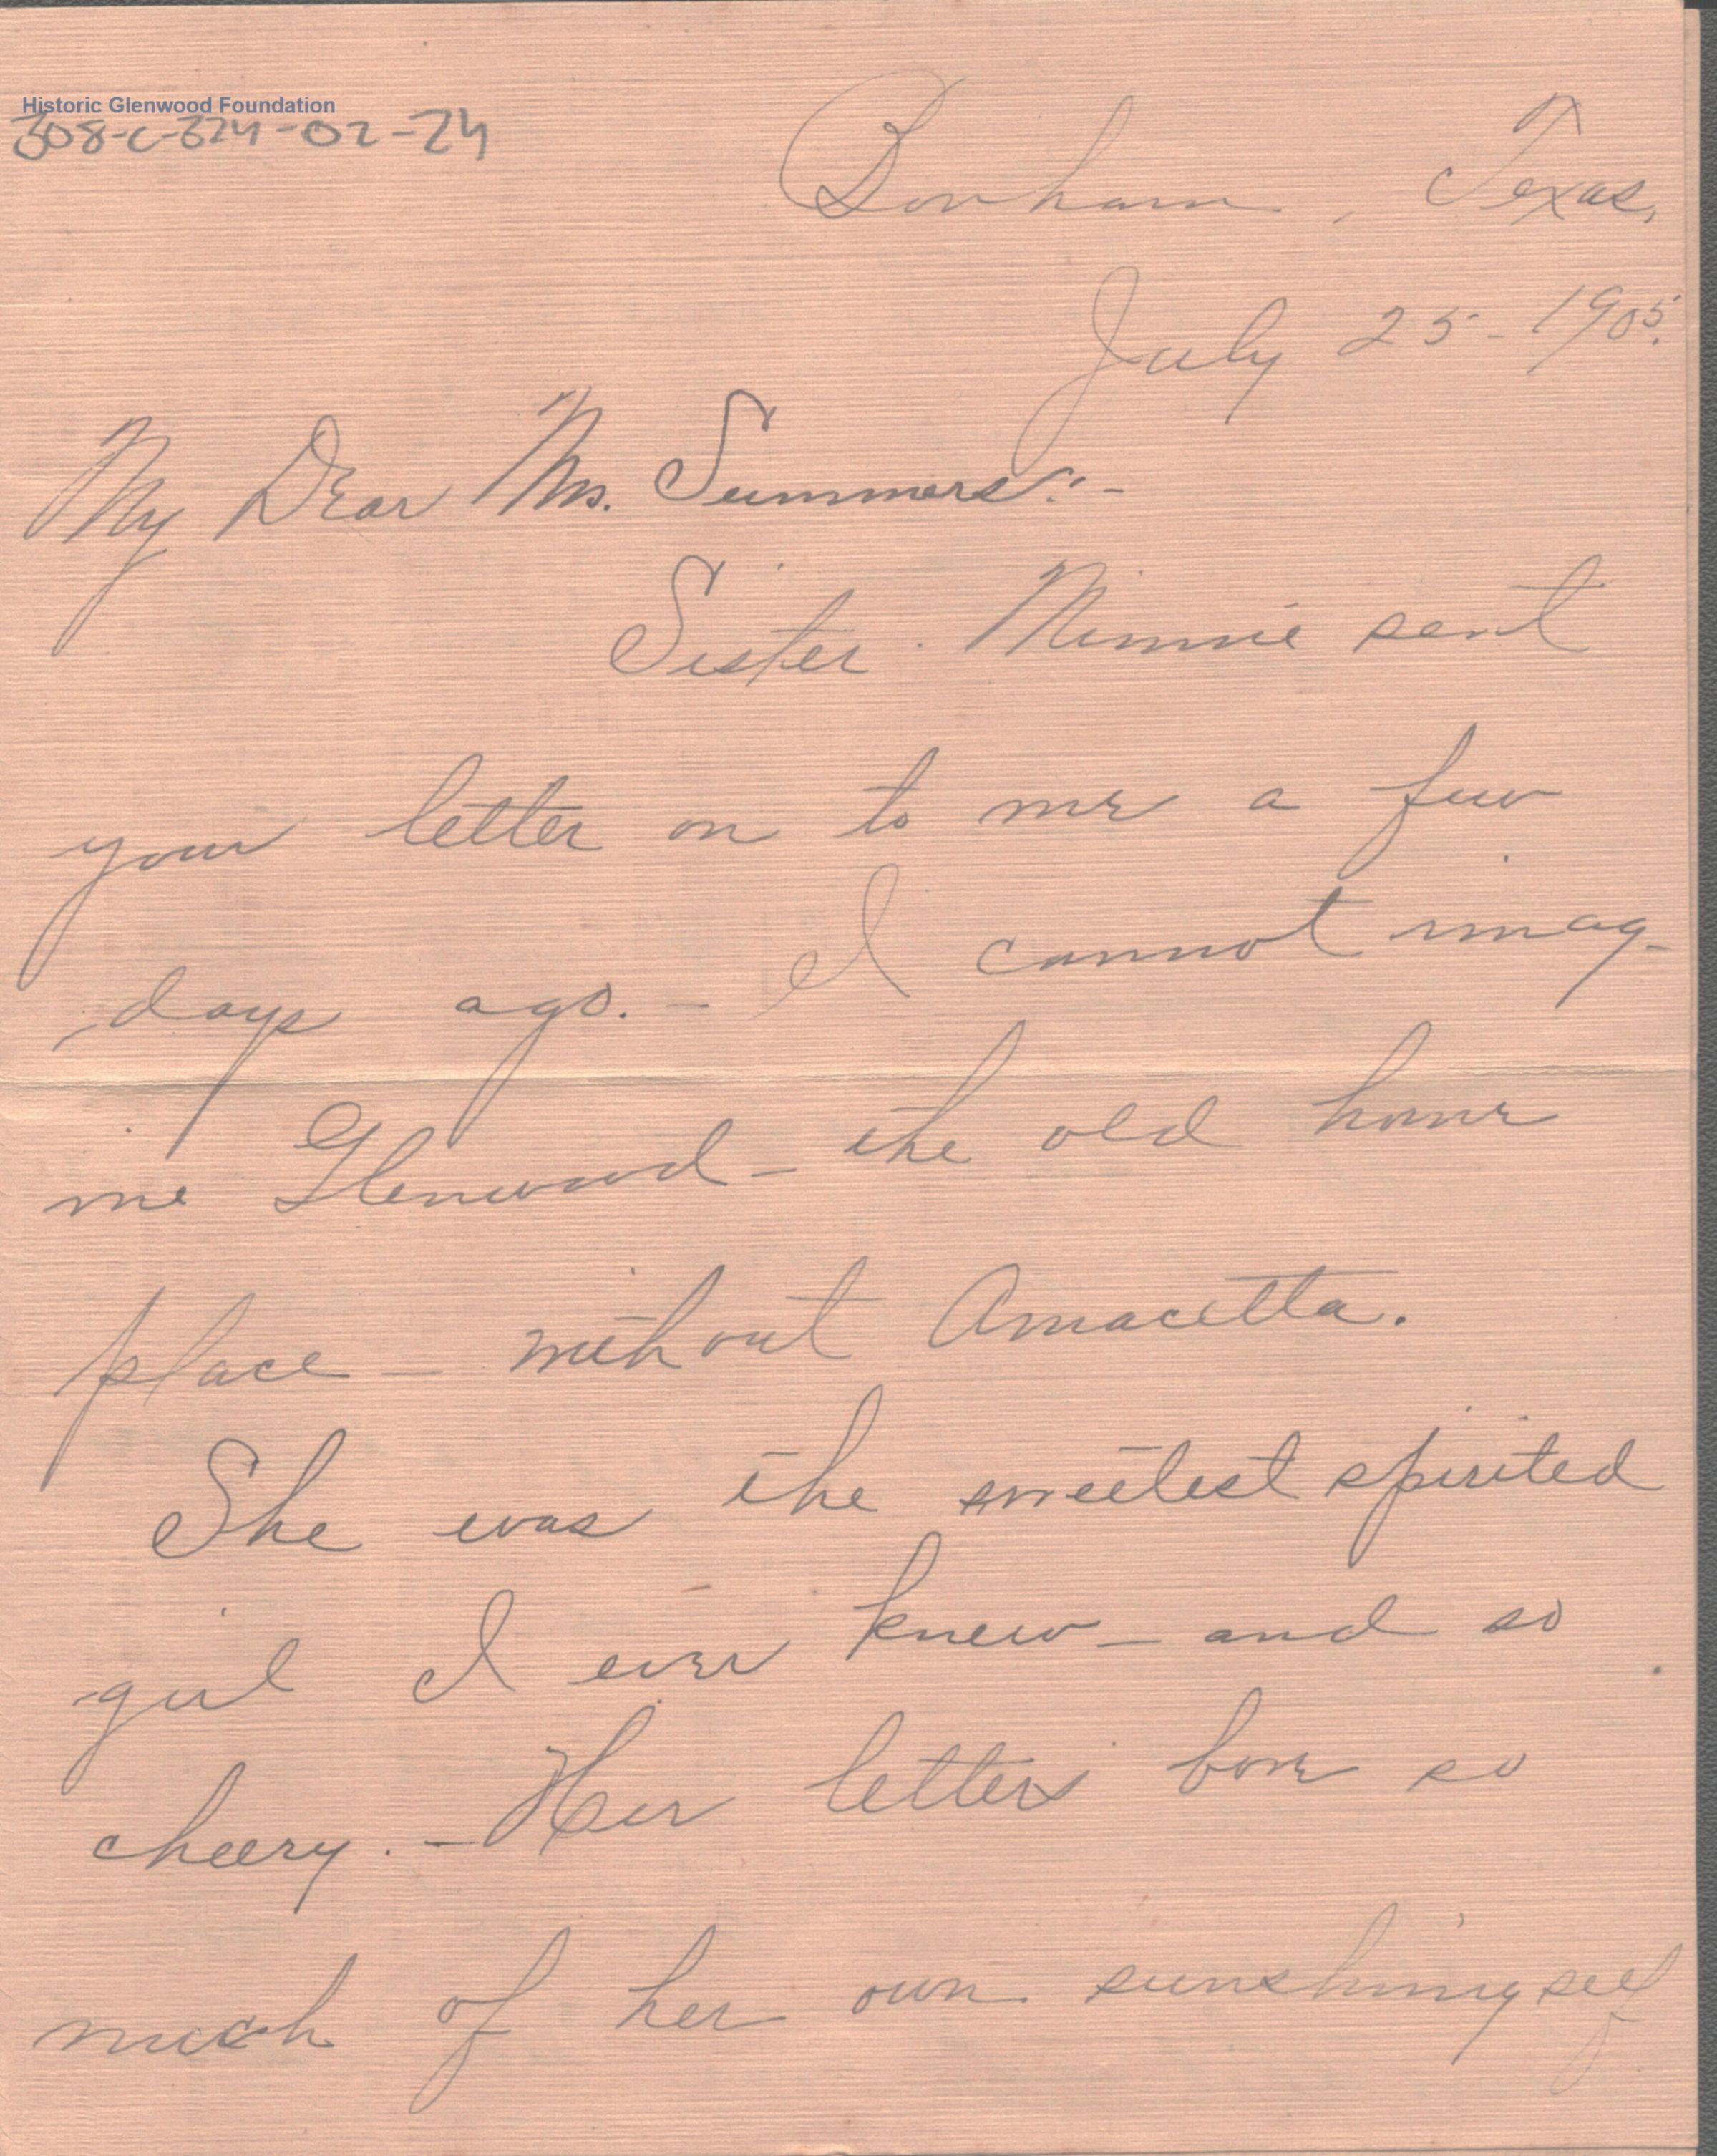 Historic Glenwood Foundation
308-C-324-02-24
Bonham, Texas,
July 25-1905.
My Dear Mrs. Summers:-
Sister Minnie sent
your letter on to me a few
days ago. - I cannot imag-
ine Glenwood - the old home
place - without Amacetta.
She was the sweetest spirited
girl I ever knew - and so
cheery. - Her letters bore so
much of her own sunshiny self